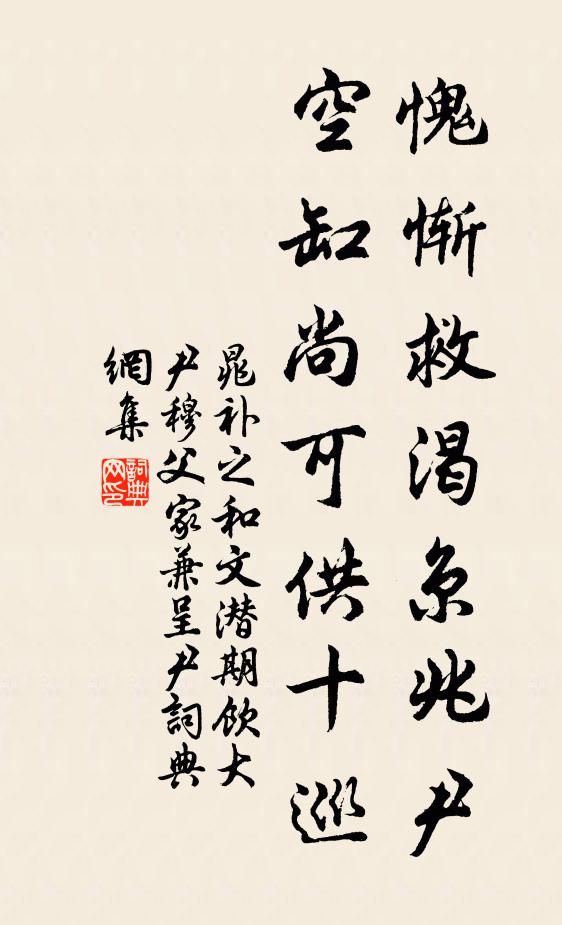 愧慚救渴京兆尹
空缸尚可供十巡
晁补之和文潜期飲大
尹穆父家兼呈尹詞典
網集
詞典
网印